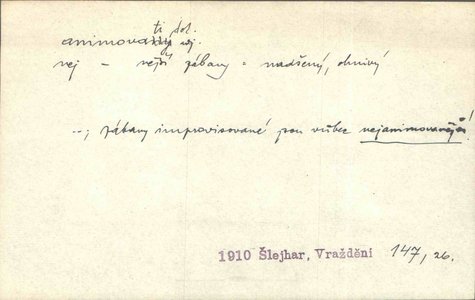 ti dol.
animovaný adj.
nej – nější zábavy = nadšený, ohnivý
..; zábavy improvisované jsou vůbec nejanimovanější!
1910 Šlejhar, Vraždění 147, 26.